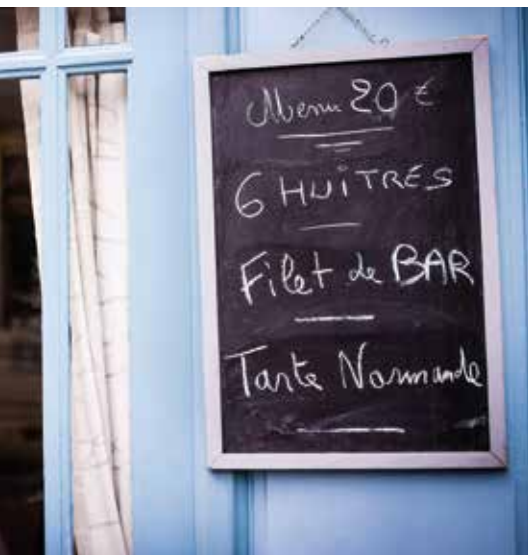 Menu 20 €
6 HUÎTRES
Filet de BAR
Tarte Normande